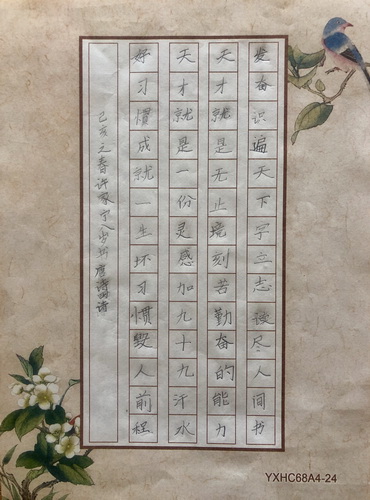 发奋识遍天下字立志读尽人间书
天才就是无止境刻苦勤奋的能力
天才就是一份灵感加九十九汗水
好习惯成就一生坏习惯毁人前程
己亥之春许家宁八岁书唐诗四诗
YXHC68A4-24